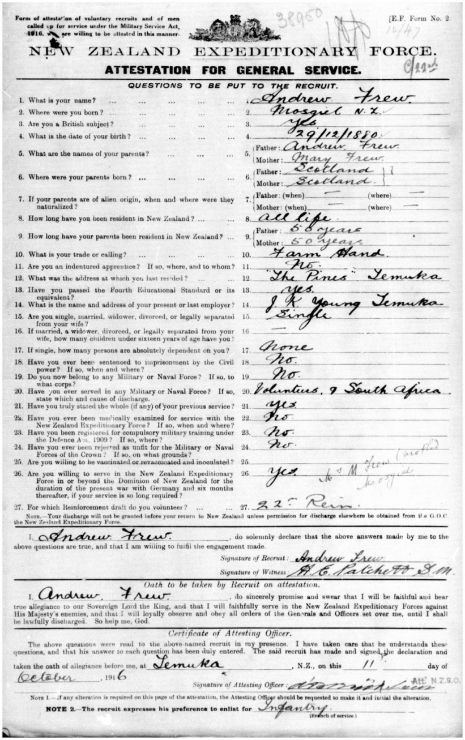 Form of attestation of voluntary recruits and of men
called up for service under the Military Service Act,
1916, are willing to be attested in this manner
38950
[E.F. Form No. 2
NEW ZEALAND EXPEDITIONARY FORCE.
C/22nd
ATTESTATION FOR GENERAL SERVICE.
QUESTIONS TO BE PUT TO THE RECRUIT.
1. What is your name? ... 1. Andrew Frew
2. Where were you born? ... 2. Mosgiel N.Z.
3. Are you a British subject? ... 3. Yes
4. What is the date of your birth? ... 4. 29/12/1880
5. What are the names of your parents? ... 5. Father: Andrew Frew
Mother: Mary Frew
6. Where were your parents born? ... 6. Father: Scotland
Mother: Scotland
7. If your parents are of alien origin, when and where were they
naturalized? 7. Father: (when) — (where) —
Mother: (when) — (where) —
8. How long have you been resident in New Zealand? ... 8. All life
9. How long have your parents been resident in New Zealand? ... 9. Father: 50 years
Mother: 50 years
10. What is your trade or calling? ... 10. Farm Hand
11. Are you an indentured apprentice? If so, where, and to whom? 11. No.
12. What was the address at which you last resided? ... 12. "The Pines" Temuka
13. Have you passed the Fourth Educational Standard or its
equivalent? 13. yes.
14. What is the name and address of your present or last employer? 14. J K Young Temuka
15. Are you single, married, widower, divorced, or legally separated
from your wife? 15. Single
16. If married, a widower, divorced, or legally separated from your
wife, how many children under sixteen years of age have you? 16. —
17. If single, how many persons are absolutely dependent on you? 17. None
18. Have you ever been sentenced to imprisonment by the Civil
power? If so, when and where? 18. No.
19. Do you now belong to any Military or Naval Force? If so, to
what corps? 19. No.
20. Have you ever served in any Military or Naval Force? If so,
state which and cause of discharge. 20. Volunteers, & South Africa
21. Have you truly stated the whole (if any) of your previous service? 21. yes.
22. Have you ever been medically examined for service with the
New Zealand Expeditionary Force? If so, when and where? 22. No
23. Have you been registered for compulsory military training under
the Defence Act, 1909? If so, where? 23. No.
24. Have you ever been rejected as unfit for the Military or Naval
Forces of the Crown? If so, on what grounds? 24. No.
25. Are you willing to be vaccinated or revaccinated and inoculated? 25.
26. Are you willing to serve in the New Zealand Expeditionary
Force in or beyond the Dominion of New Zealand for the
duration of the present war with Germany and six months
thereafter, if your service is so long required? 26. yes
27. For which Reinforcement draft do you volunteer? ... 27. 22nd Rein.
NOTE.—Your discharge will not be granted before your return to New Zealand unless permission for discharge elsewhere be obtained from the G.O.C.
the New Zealand Expeditionary Force.
I, Andrew Frew, do solemnly declare that the above answers made by me to the
above questions are true, and that I am willing to fulfil the engagement made.
Signature of Recruit: Andrew Frew
Signature of Witness: H. C. Patchett S.M.
Oath to be taken by Recruit on attestation.
I, Andrew Frew, do sincerely promise and swear that I will be faithful and bear
true allegiance to our Sovereign Lord the King, and that I will faithfully serve in the New Zealand Expeditionary Forces against
His Majesty's enemies, and that I will loyally observe and obey all orders of the Generals and Officers set over me, until I shall
be lawfully discharged. So help me, God.
Certificate of Attesting Officer.
The above questions were read to the above-named recruit in my presence. I have taken care that he understands these
questions, and that his answer to each question has been duly entered. The said recruit has made and signed the declaration and
taken the oath of allegiance before me, at Temuka, N.Z., on this 11 day of
October, 1916
Signature of Attesting Officer:
NOTE 1.—If any alteration is required on this page of the attestation, the Attesting Officer should be requested to make it and initial the alteration.
NOTE 2.—The recruit expresses his preference to enlist for Infantry
(Branch of service.)